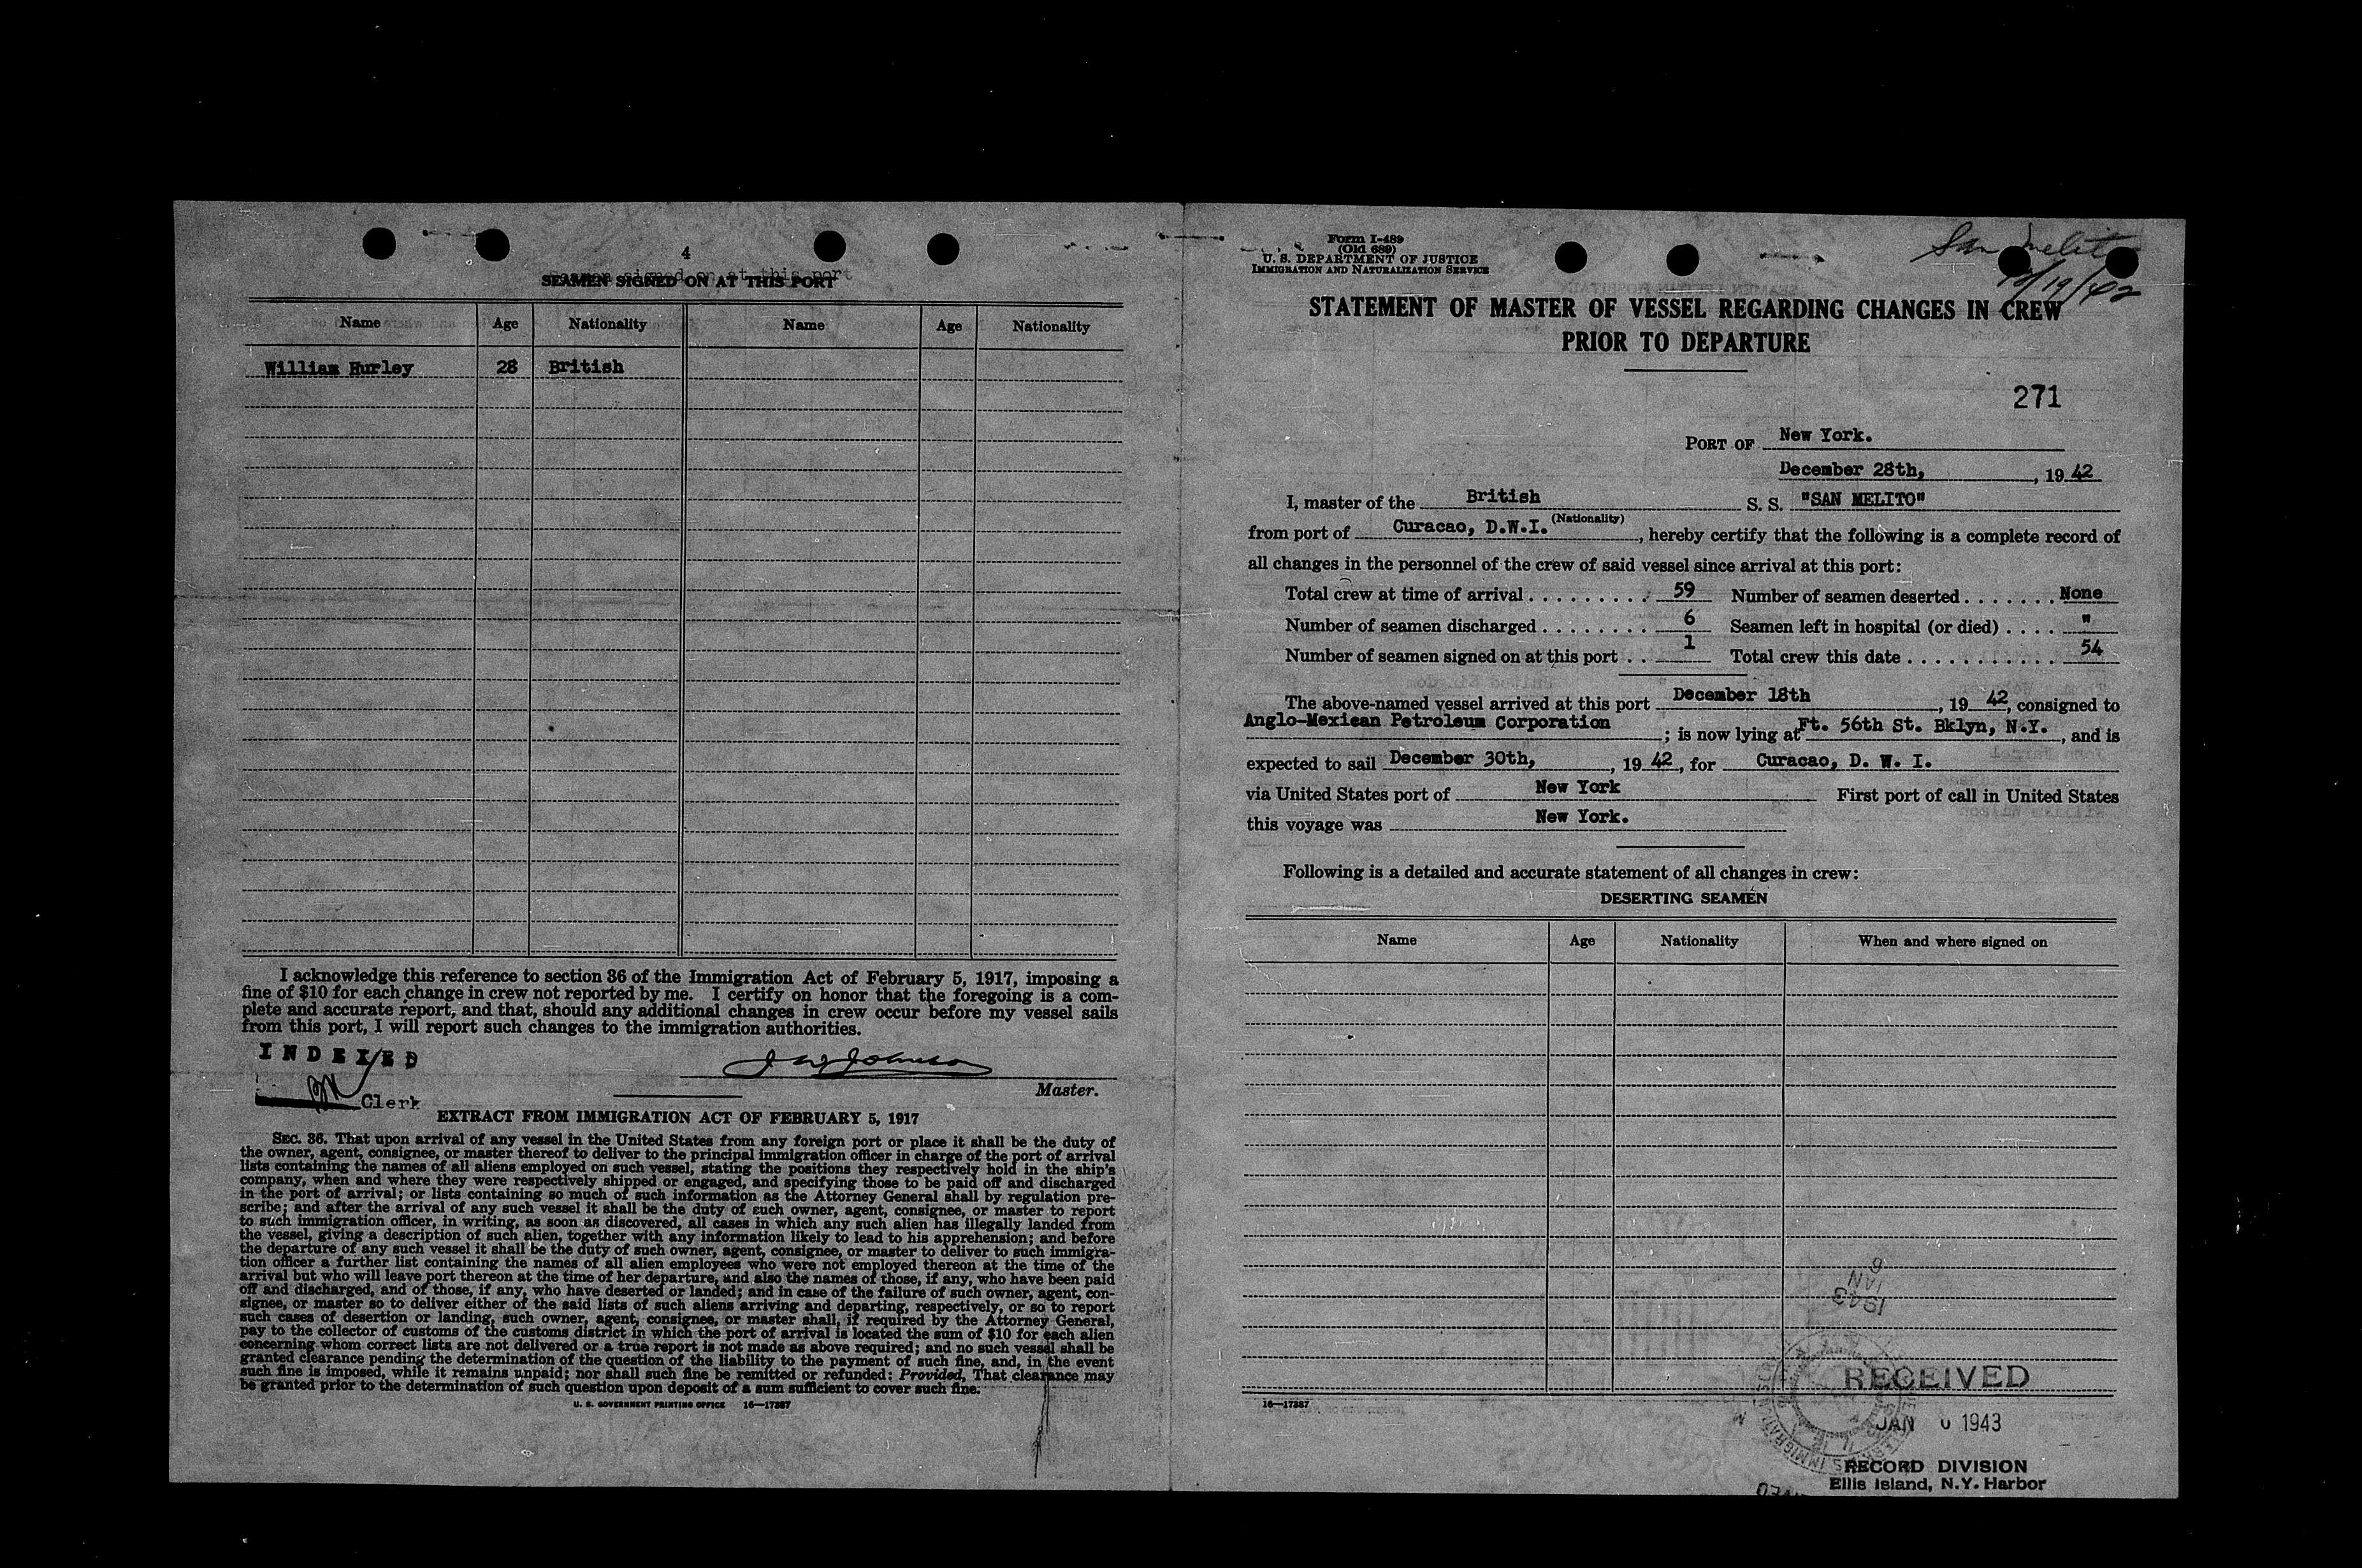 4
SEAMEN SIGNED ON AT THIS PORT
seamen signed on at this port
Name Age Nationality Name Age Nationality
William Hurley 28 British
I acknowledge this reference to section 36 of the Immigration Act of February 5, 1917, imposing a
fine of $10 for each change in crew not reported by me. I certify on honor that the foregoing is a com-
plete and accurate report, and that, should any additional changes in crew occur before my vessel sails
from this port, I will report such changes to the immigration authorities.
INDEXED
Johnson
Master.
Clerk
EXTRACT FROM IMMIGRATION ACT OF FEBRUARY 5, 1917
SEC. 36. That upon arrival of any vessel in the United States from any foreign port or place it shall be the duty of
the owner, agent, consignee, or master thereof to deliver to the principal immigration officer in charge of the port of arrival
lists containing the names of all aliens employed on such vessel, stating the positions they respectively hold in the ship's
company, when and where they were respectively shipped or engaged, and specifying those to be paid off and discharged
in the port of arrival; or lists containing so much of such information as the Attorney General shall by regulation pre-
scribe; and after the arrival of any such vessel it shall be the duty of such owner, agent, consignee, or master to report
to such immigration officer, in writing, as soon as discovered, all cases in which any such alien has illegally landed from
the vessel, giving a description of such alien, together with any information likely to lead to his apprehension; and before
the departure of any such vessel it shall be the duty of such owner, agent, consignee, or master to deliver to such immigra-
tion officer a further list containing the names of all alien employees who were not employed thereon at the time of the
arrival but who will leave port thereon at the time of her departure, and also the names of those, if any, who have been paid
off and discharged, and of those, if any, who have deserted or landed; and in case of the failure of such owner, agent, con-
signee, or master so to deliver either of the said lists of such aliens arriving and departing, respectively, or so to report
such cases of desertion or landing, such owner, agent, consignee, or master shall, if required by the Attorney General,
pay to the collector of customs of the customs district in which the port of arrival is located the sum of $10 for each alien
concerning whom correct lists are not delivered or a true report is not made as above required; and no such vessel shall be
granted clearance pending the determination of the question of the liability to the payment of such fine, and, in the event
such fine is imposed, while it remains unpaid; nor shall such fine be remitted or refunded: Provided, That clearance may
be granted prior to the determination of such question upon deposit of a sum sufficient to cover such fine.
U. S. GOVERNMENT PRINTING OFFICE 16—17387
Form I-489
(Old 689)
U. S. DEPARTMENT OF JUSTICE
IMMIGRATION AND NATURALIZATION SERVICE
San Melito
12/19/42
STATEMENT OF MASTER OF VESSEL REGARDING CHANGES IN CREW
PRIOR TO DEPARTURE
271
PORT OF New York.
December 28th, , 19 42
I, master of the British S. S. "SAN MELITO"
(Nationality)
from port of Curacao, D.W.I. , hereby certify that the following is a complete record of
all changes in the personnel of the crew of said vessel since arrival at this port:
Total crew at time of arrival . . . . . . . . . 59 Number of seamen deserted . . . . . . . None
Number of seamen discharged . . . . . . . . 6 Seamen left in hospital (or died) . . . . "
Number of seamen signed on at this port . . 1 Total crew this date . . . . . . . . . . . . 54
The above-named vessel arrived at this port December 18th , 19 42, consigned to
Anglo-Mexican Petroleum Corporation ; is now lying at Ft. 56th St. Bklyn, N.Y. , and is
expected to sail December 30th, , 19 42, for Curacao, D. W. I.
via United States port of New York First port of call in United States
this voyage was New York.
Following is a detailed and accurate statement of all changes in crew:
DESERTING SEAMEN
Name Age Nationality When and where signed on
6
JAN
1943
16—17387
RECEIVED
JAN 1943
RECORD DIVISION
Ellis Island, N.Y. Harbor